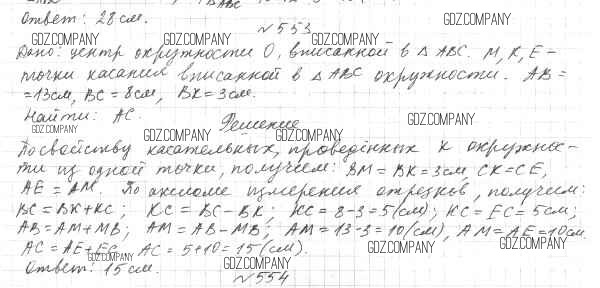 Ответ: 28 см.
GDZ.COMPANY
№553
GDZ.COMPANY GDZ.COMPANY GDZ.COMPANY
Дано: центр окружности O, вписанной в △ ABC. M, K, E –
точки касания вписанной в △ ABC окружности. AB =
= 13см, BC = 8см, BK = 3см.
Найти: AC.
GDZ.COMPANY
Решение
GDZ.COMPANY GDZ.COMPANY GDZ.COMPANY
По свойству касательных, проведённых к окружнос-
ти из одной точки, получаем: BM = BK = 3см, CK = CE,
AE = AM. По аксиоме измерения отрезков, получаем:
BC = BK + KC; KC = BC - BK; KC = 8 - 3 = 5(см); KC = EC = 5см;
AB = AM + MB; AM = AB - MB; AM = 13 - 3 = 10(см), AM = AE = 10см.
AC = AE + EC, AC = 5 + 10 = 15(см).
GDZ.COMPANY GDZ.COMPANY GDZ.COMPANY
Ответ: 15 см.
GDZ.COMPANY
№554